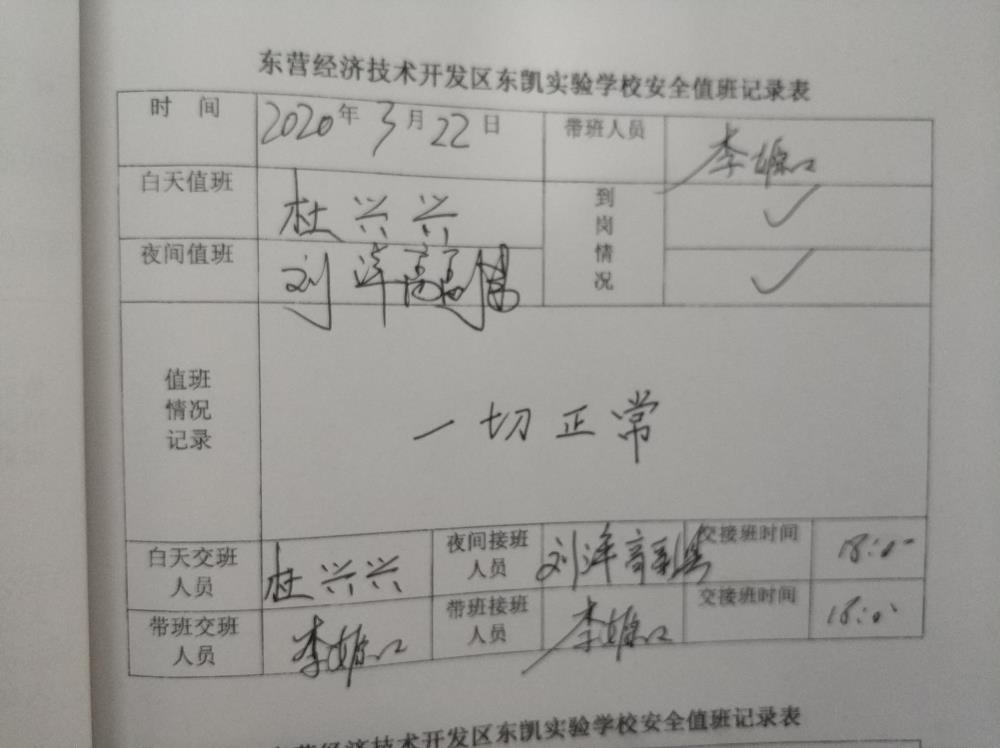 东营经济技术开发区东凯实验学校安全值班记录表
时间 2020年3月22日 带班人员 李
白天值班 杜兴兴 到岗情况 ✓
夜间值班 刘洋高 ✓
值班情况记录 一切正常
白天交班人员 杜兴兴 夜间接班人员 刘洋高 交接班时间 18:00
带班交班人员 李 带班接班人员 李 交接班时间 18:00
东营经济技术开发区东凯实验学校安全值班记录表